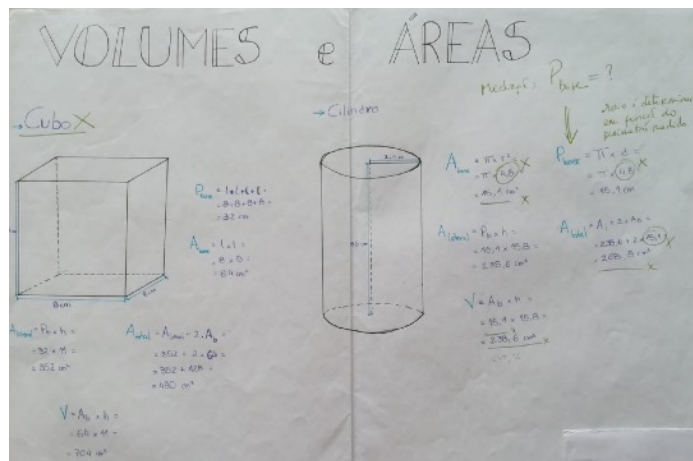 VOLUMES e ÁREAS
→ Cubo X
P base = l+l+l+l =
= 8+8+8+8 =
= 32 cm
A base = l×l =
= 8 × 8 =
= 64 cm²
8 cm
A lateral = Pb × h =
= 32 × 11 =
= 352 cm²
A total = A lateral + 2×Ab =
= 352 + 2 ×
= 352 + 128 =
= 480 cm²
V = Ab × h =
= 64 × 11 =
= 704 cm³
→ Cilindro
Medição: P base = ?
raio é determinado
em função do
perímetro medido
A base = π × r² = X
= π × 4,8
= 15,1 cm² X
P base = π × d = X
= π × 4,8
= 15,1 cm
A lateral = Pb × h =
= 15,1 × 15,8 =
= 238,6 cm²
A total = Al + 2 × Ab =
= 238,6 + 2 × 15,1
= 268,8 cm² X
V = Ab × h =
= 15,1 × 15,8 =
= 238,6 cm³ X